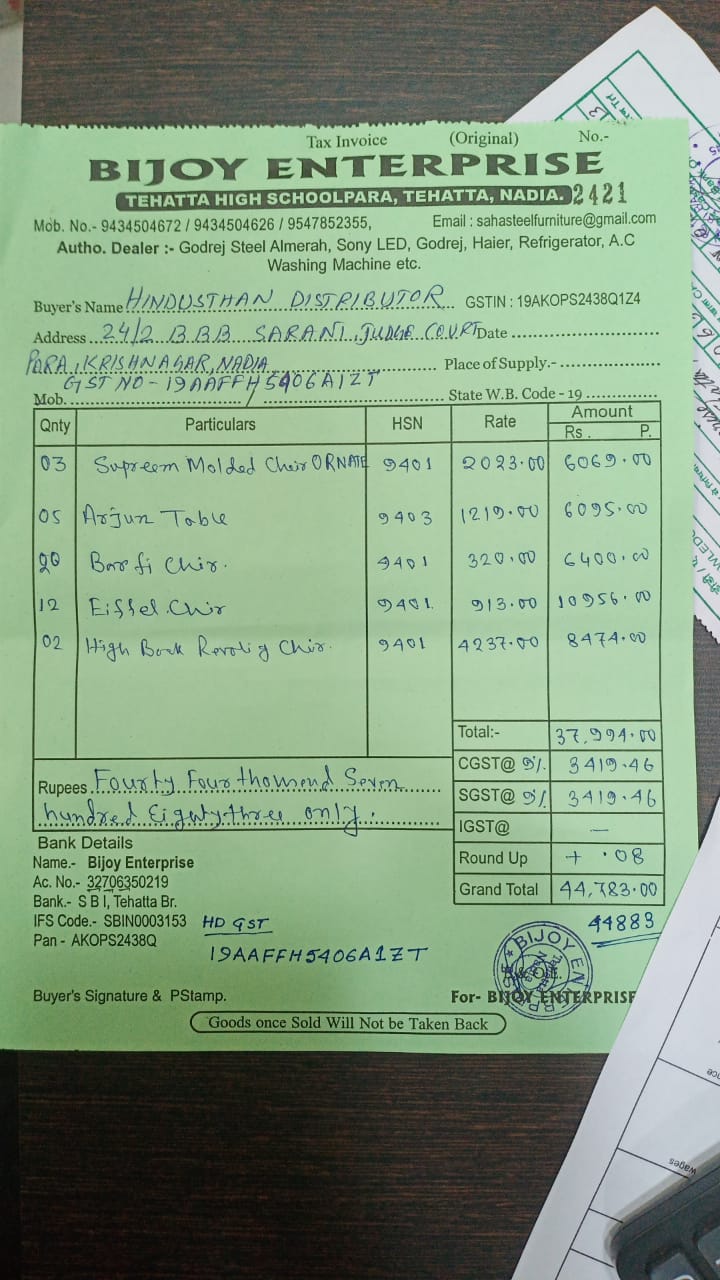 Tax Invoice (Original) No.-
BIJOY ENTERPRISE
TEHATTA HIGH SCHOOLPARA, TEHATTA, NADIA. 2421
Mob. No.- 9434504672 / 9434504626 / 9547852355, Email : sahasteelfurniture@gmail.com
Autho. Dealer :- Godrej Steel Almerah, Sony LED, Godrej, Haier, Refrigerator, A.C
Washing Machine etc.
Buyer's Name HINDUSTHAN DISTRIBUTOR GSTIN : 19AKOPS2438Q1Z4
Address 24/2 BBB SARANI, JUDGE COURT Date
PARA, KRISHNAGAR, NADIA Place of Supply.-
GST NO - 19AAFFH5406A1ZT
Mob. State W.B. Code - 19
Qnty Particulars HSN Rate Amount
Rs . P.
03 Supreem Molded Cheir ORNATE 9401 2023.00 6069.00
05 Arjun Table 9403 1219.00 6095.00
20 Barfi Chir. 9401 320.00 6400.00
12 Eiffel Chir 9401 913.00 10956.00
02 High Back Revolig Chir. 9401 4237.00 8474.00
Total:- 37,994.00
CGST@ 9% 3419.46
SGST@ 9% 3419.46
IGST@ —
Round Up + .08
Grand Total 44,783.00
Rupees Fourty Four thousend Seven
hundred Eighty three only.
Bank Details
Name.- Bijoy Enterprise
Ac. No.- 32706350219
Bank.- S B I, Tehatta Br.
IFS Code.- SBIN0003153 HD GST 44883
Pan - AKOPS2438Q 19AAFFH5406A1ZT
BIJOY EN
Buyer's Signature & PStamp. For- BIJOY ENTERPRISE
Goods once Sold Will Not be Taken Back
wages